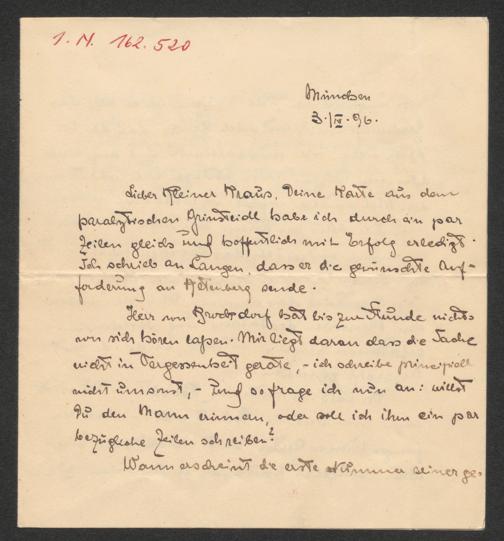 I. N. 162.520
München
3./IV. 96.
Lieber kleiner Kraus, Deine Karte aus dem
paralytischen Griensteidl habe ich durch ein par
Zeilen gleich und hoffentlich mit Erfolg erledigt.
Ich schrieb an Langen, dass er die gewünschte Auf-
forderung an Altenberg sende.
Herr von Brockdorf hat bis zur Stunde nichts
von sich hören lassen. Mir liegt daran dass die Sache
nicht in Vergessenheit gerate, - ich schreibe principiell
nicht umsonst, - und so frage ich nun an: willst
Du den Mann erinnern, oder soll ich ihm ein par
bezügliche Zeilen schreiben?
Wann erscheint die erste Nummer seiner ge-